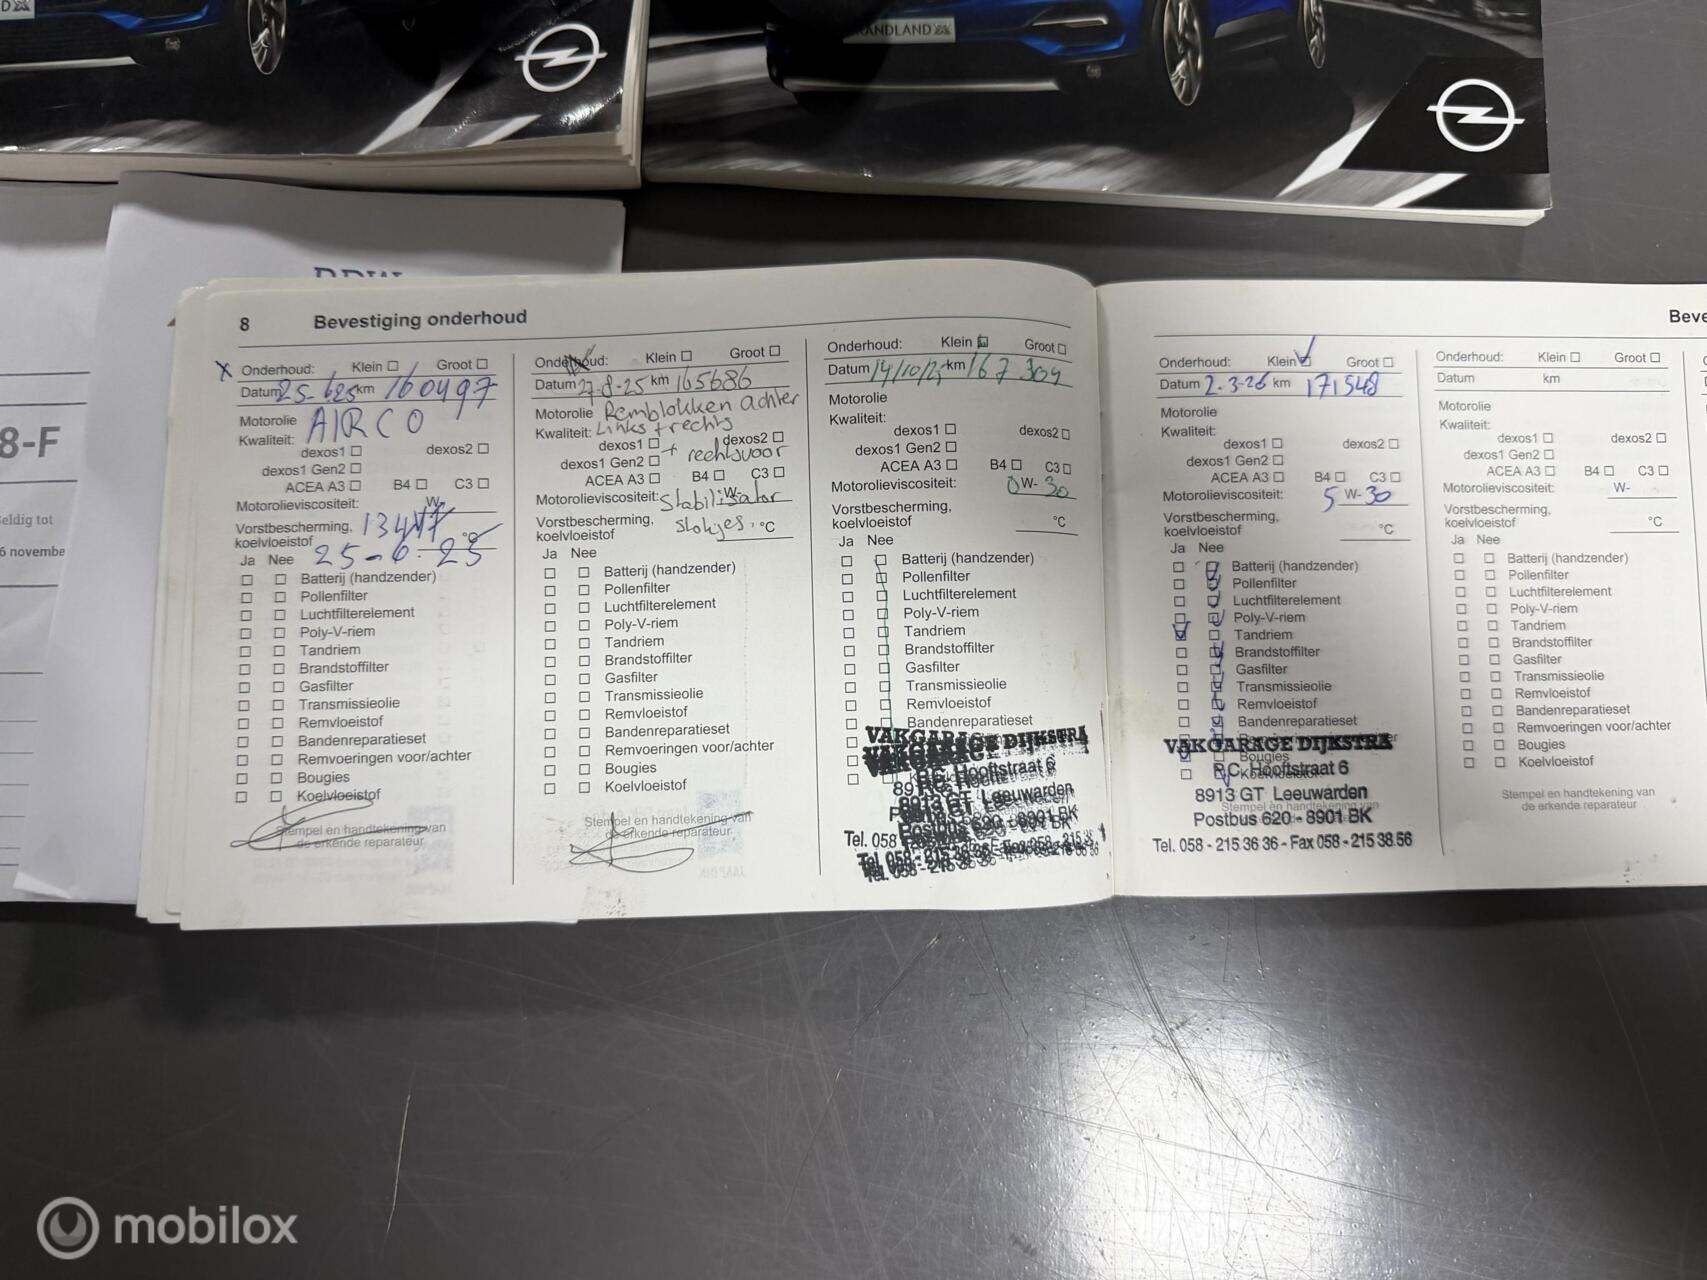 GRANDLAND X
RDW
8-F
eldig tot
6 novembe
8 Bevestiging onderhoud
X Onderhoud: Klein Groot
Datum 25-6-25 km 160497
Motorolie
Kwaliteit: AIRCO
dexos1 dexos2
dexos1 Gen2
ACEA A3 B4 C3
Motorolieviscositeit: W-
Vorstbescherming,
koelvloeistof °C
25-6-25
Ja Nee
Batterij (handzender)
Pollenfilter
Luchtfilterelement
Poly-V-riem
Tandriem
Brandstoffilter
Gasfilter
Transmissieolie
Remvloeistof
Bandenreparatieset
Remvoeringen voor/achter
Bougies
Koelvloeistof
Stempel en handtekening van
de erkende reparateur
Onderhoud: Klein Groot
Datum 27-8-25 km 165686
Motorolie Remblokken achter
Kwaliteit: Links + rechts
dexos1 dexos2
+ rechtsvoor
dexos1 Gen2
ACEA A3 B4 C3
Motorolieviscositeit: W-
Stabilisator
Vorstbescherming,
koelvloeistof °C
stokjes.
Ja Nee
Batterij (handzender)
Pollenfilter
Luchtfilterelement
Poly-V-riem
Tandriem
Brandstoffilter
Gasfilter
Transmissieolie
Remvloeistof
Bandenreparatieset
Remvoeringen voor/achter
Bougies
Koelvloeistof
Stempel en handtekening van
de erkende reparateur
Onderhoud: Klein Groot
Datum 14/10/25 km 167304
Motorolie
Kwaliteit:
dexos1 dexos2
dexos1 Gen2
ACEA A3 B4 C3
Motorolieviscositeit: 0 W- 30
Vorstbescherming,
koelvloeistof °C
Ja Nee
Batterij (handzender)
Pollenfilter
Luchtfilterelement
Poly-V-riem
Tandriem
Brandstoffilter
Gasfilter
Transmissieolie
Remvloeistof
Bandenreparatieset
VAKGARAGE DIJKSTRA
P.C. Hooftstraat 6
8913 GT Leeuwarden
Postbus 620 - 8901 BK
Tel. 058 - 215 36 36 - Fax 058 - 215 38 56
Beve
Onderhoud: Klein Groot
Datum 2-3-26 km 171548
Motorolie
Kwaliteit:
dexos1 dexos2
dexos1 Gen2
ACEA A3 B4 C3
Motorolieviscositeit: 5 W- 30
Vorstbescherming,
koelvloeistof °C
Ja Nee
Batterij (handzender)
Pollenfilter
Luchtfilterelement
Poly-V-riem
Tandriem
Brandstoffilter
Gasfilter
Transmissieolie
Remvloeistof
Bandenreparatieset
VAKGARAGE DIJKSTRA
Bougies
P.C. Hooftstraat 6
Koelvloeistof
8913 GT Leeuwarden
Stempel en handtekening van
Postbus 620 - 8901 BK
Tel. 058 - 215 36 36 - Fax 058 - 215 38 56
Onderhoud: Klein Groot
Datum km
Motorolie
Kwaliteit:
dexos1 dexos2
dexos1 Gen2
ACEA A3 B4 C3
Motorolieviscositeit: W-
Vorstbescherming,
koelvloeistof °C
Ja Nee
Batterij (handzender)
Pollenfilter
Luchtfilterelement
Poly-V-riem
Tandriem
Brandstoffilter
Gasfilter
Transmissieolie
Remvloeistof
Bandenreparatieset
Remvoeringen voor/achter
Bougies
Koelvloeistof
Stempel en handtekening van
de erkende reparateur
mobilox